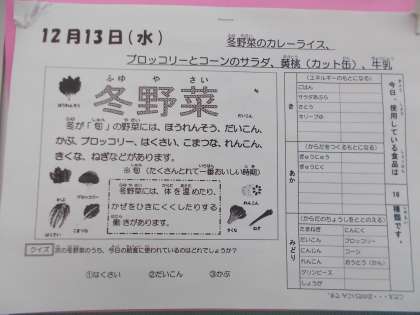 12月13日(水)
冬野菜のカレーライス、
ブロッコリーとコーンのサラダ、黄桃(カット缶)、牛乳
ふゆ やさい
冬野菜
ほうれんそう
だいこん
冬が「旬」の野菜には、ほうれんそう、だいこん、
かぶ、ブロッコリー、はくさい、こまつな、れんこん、
きくな、ねぎなどがあります。
※旬(たくさんとれて一番おいしい時期)
冬野菜には、体を温めたり、
かぜをひきにくくしたりする
働きがあります。
ブロッコリー
かぶ
はくさい
こまつな
れんこん
きくな
ねぎ
クイズ
次の野菜のうち、今日の給食に使われているのはどれでしょうか?
①はくさい ②だいこん ③かぶ
今日、使用している食品は
18
種類です。
(エネルギーのもとになる)
き
ごはん
サラダあぶら
さとう
オリーブゆ
(からだをつくるもとになる)
あか
ぎゅうにゅう
ぎゅうにく
(からだのちょうしをととのえる)
みどり
たまねぎ にんにく
だいこん ブロッコリー
にんじん コーン
れんこん おうとう(かん)
グリンピース
しょうが